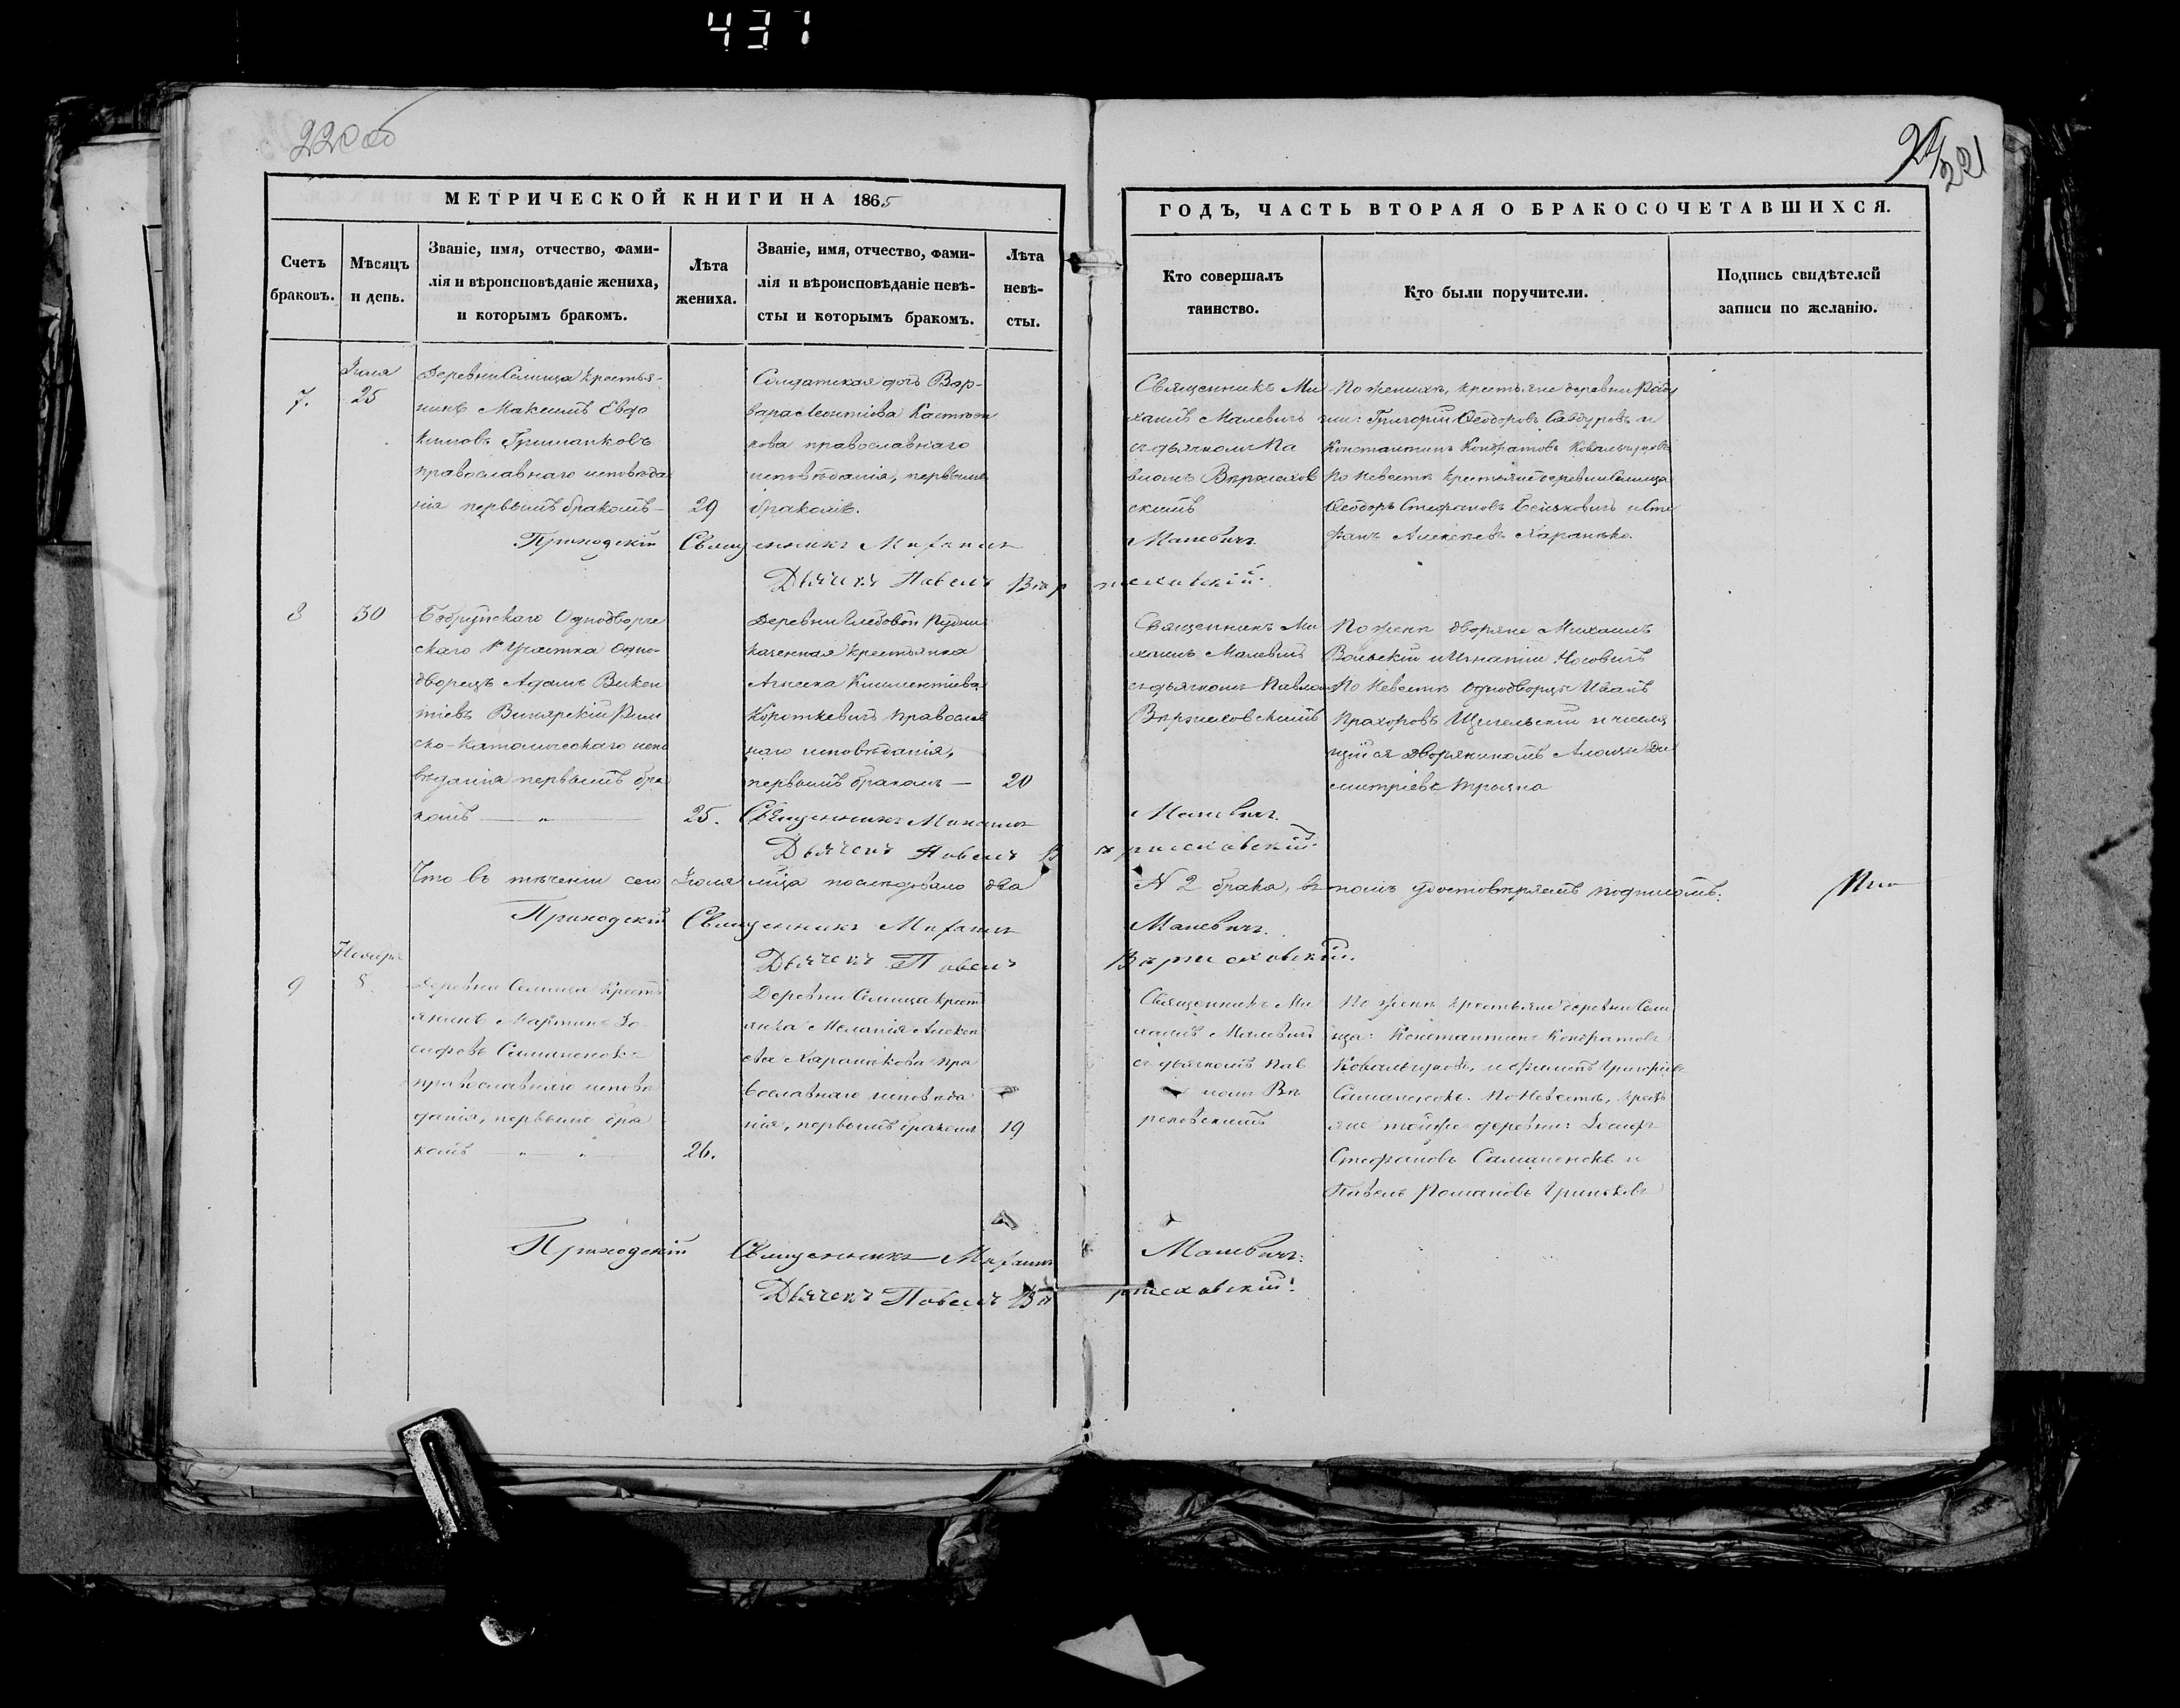 437
220 об
24/221
МЕТРИЧЕСКОЙ КНИГИ НА 1865
Счетъ
браковъ.
Мѣсяцъ
и день.
Званіе, имя, отчество, фами-
лія и вѣроисповѣданіе жениха,
и которымъ бракомъ.
Лѣта
жениха.
Званіе, имя, отчество, фами-
лія и вѣроисповѣданіе невѣ-
сты и которымъ бракомъ.
Лѣта
невѣ-
сты.
ГОДЪ, ЧАСТЬ ВТОРАЯ О БРАКОСОЧЕТАВШИХСЯ.
Кто совершалъ
таинство.
Кто были поручители.
Подпись свидѣтелей
записи по желанію.
7.
Іюля
25
Деревни Селища крестья-
нинъ Максимъ Евдо
кимовъ
православнаго исповѣда
нія первымъ бракомъ
29
Солдатская дочь Вар-
вара Леонтіова
кова православнаго
исповѣданія, первымъ
бракомъ.
Священникъ Ми
хаилъ Малевичъ
съ дьячкомъ Па
вломъ Вержеховскимъ
скимъ
По женихѣ, крестьяне деревни
Григорій Ѳеодоровъ и
Константинъ Кондратовъ Ковальчуковъ
По невѣстѣ крестьяне деревни Селища
Ѳеодоръ Стефановъ и Сте
фанъ Алексѣевъ
Приходскій Священникъ Михаилъ Малевичъ.
Дьячекъ Павелъ Вержеховскій.
8
30
Бобруйскаго Однодворче
скаго 1го Участка Одно-
дворецъ Адамъ Викен
тіевъ Рим
ско-Католическаго испо
вѣданія первымъ бра
комъ
25.
Деревни Глебовой Рудни
казенная крестьянка
Климентіева
Короткевичъ православ
наго исповѣданія,
первымъ бракомъ
20
Священникъ Ми
хаилъ Малевичъ
съ дьячкомъ Павломъ
Вержеховскимъ
По женихѣ дворяне Михаилъ
Вольскій и Игнатій Носовичъ
По невѣстѣ однодворцы Иванъ
Прохоровъ и числя
щійся дворяниномъ Ди
митріевъ
Священникъ Михаилъ Малевичъ.
Дьячекъ Павелъ Вержеховскій.
Что въ теченіи сего Іюля мца послѣдовало два № 2 брака, въ томъ удостовѣряемъ подписомъ.
Приходскій Священникъ Михаилъ Малевичъ.
Дьячекъ Павелъ Вержеховскій.
9
Ноября
8.
Деревни Селища крестья
янинъ Мартинъ Іо
сифовъ Саманенокъ
православнаго исповѣ
данія, первымъ бра
комъ
26.
Деревни Селища крест
янка Меланія Алексѣ
ева пра
вославнаго исповѣда
нія, первымъ бракомъ
19
Священникъ Ми
хаилъ Малевичъ
съ дьячкомъ Пав
ломъ Ве
рховскимъ
По женихѣ крестьяне деревни Сели
ща: Константинъ Кондратовъ
Ковальчуковъ, и Григорьевъ
Саманенокъ. По невѣстѣ, крестья
яне тойже деревни: Іосифъ
Стефановъ Саманенокъ и
Павелъ Романовъ
Приходскій Священникъ Михаилъ Малевичъ.
Дьячекъ Павелъ Вержеховскій.